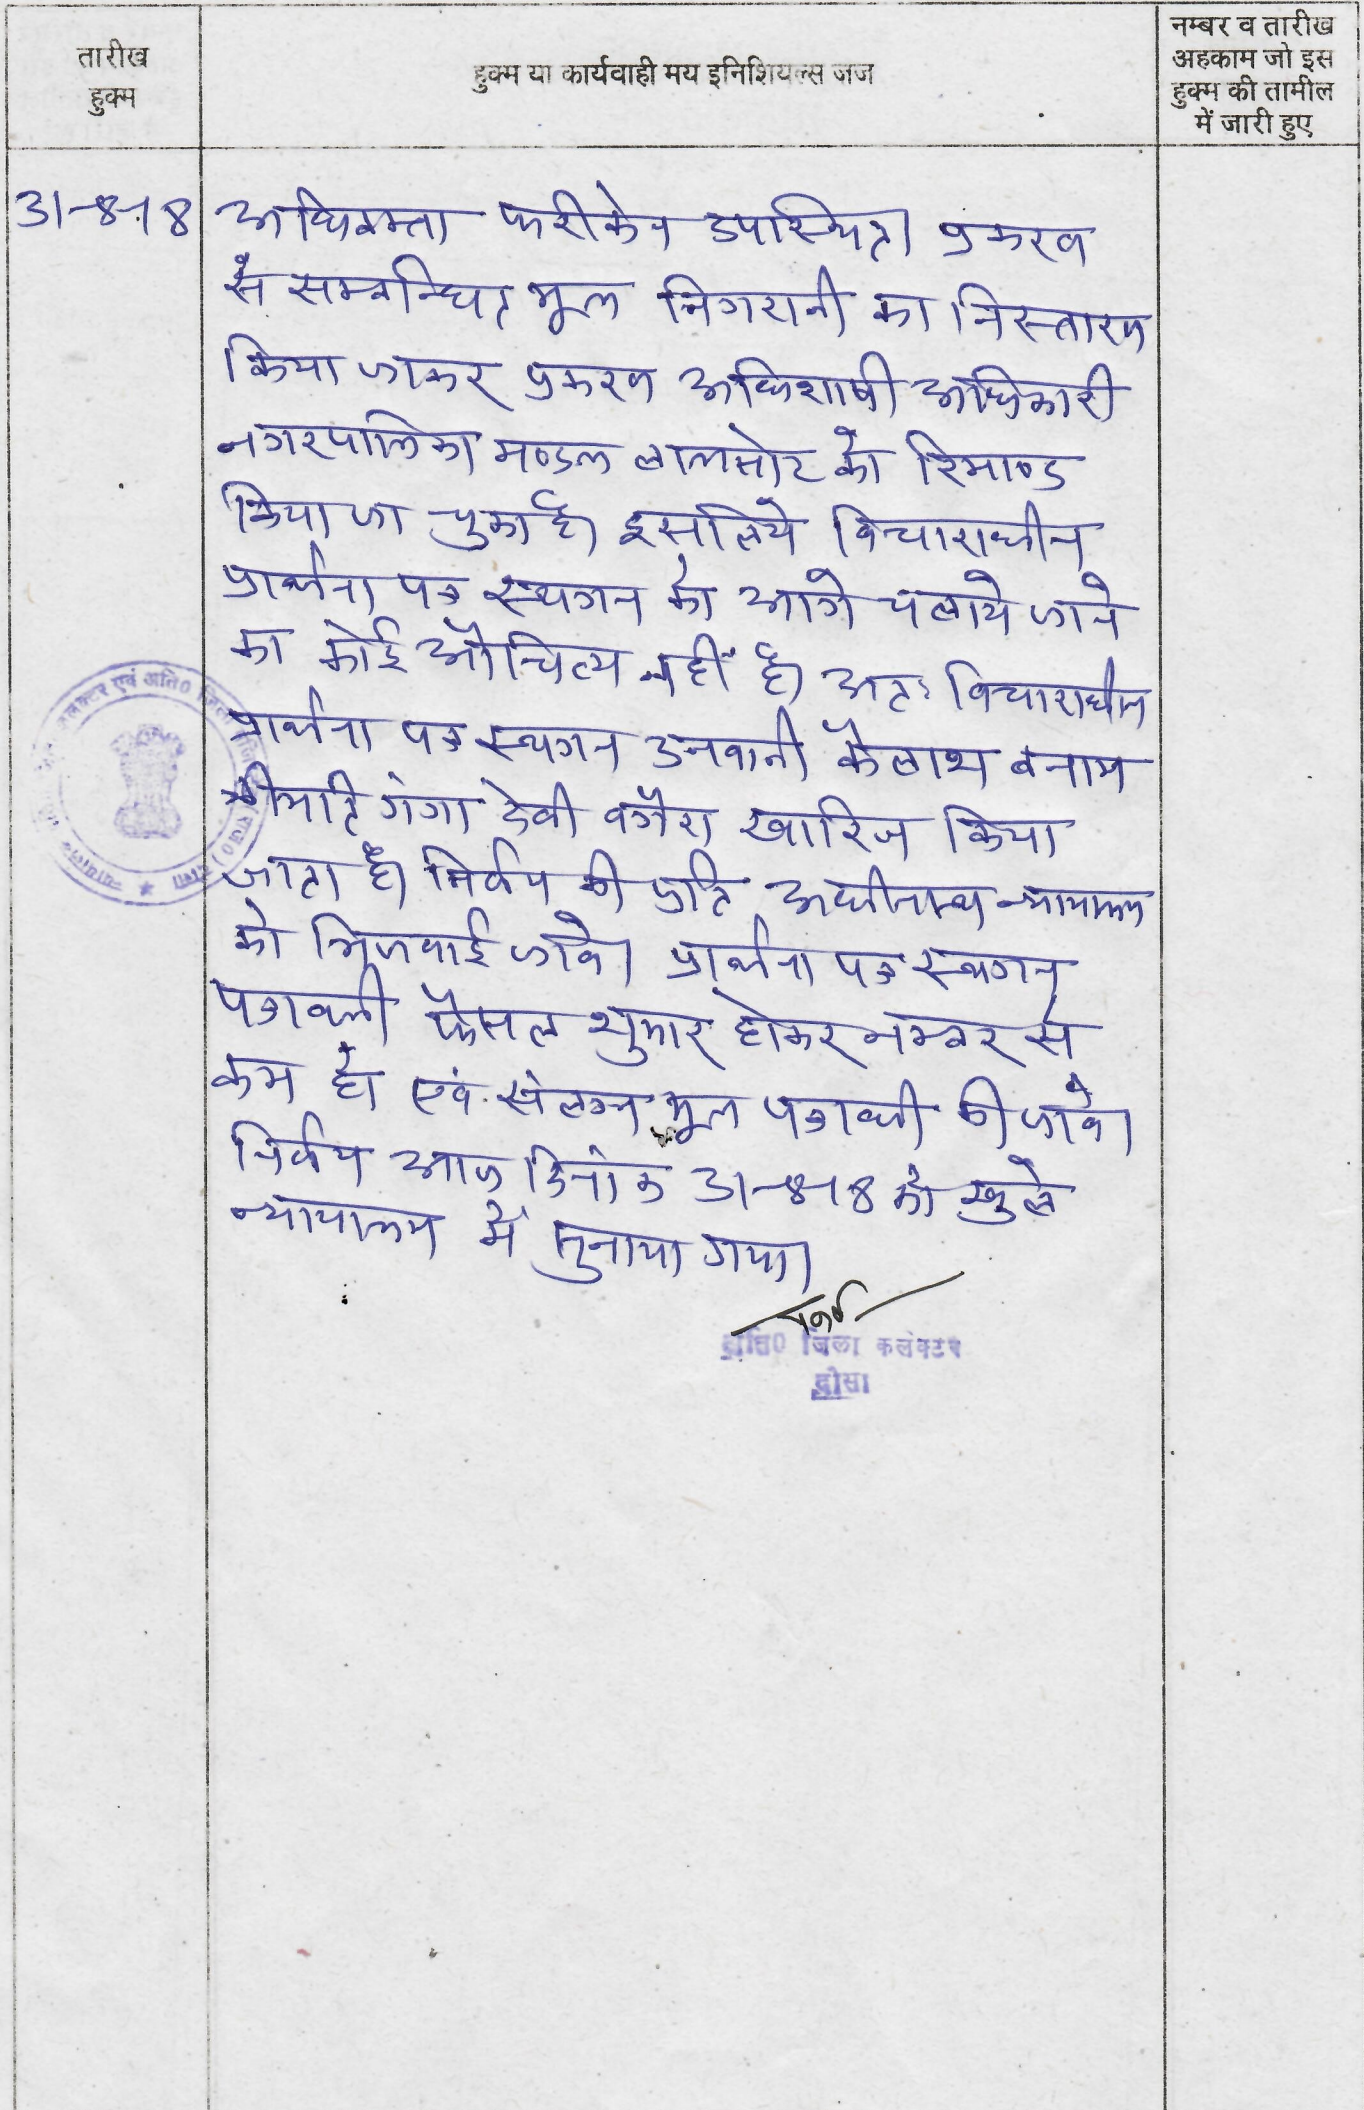 तारीख
हुक्म
हुक्म या कार्यवाही मय इनिशियल्स जज
नम्बर व तारीख
अहकाम जो इस
हुक्म की तामील
में जारी हुए
31-8-18
अधिवक्ता फरीकेन उपस्थित। प्रकरण
से सम्बन्धित मूल निगरानी का निस्तारण
किया जाकर प्रकरण अधिशाषी अधिकारी
नगरपालिका मण्डल लालसोट को रिमाण्ड
किया जा चुका है। इसलिये विचाराधीन
प्रार्थना पत्र स्थगन को आगे चलाये जाने
का कोई औचित्य नहीं है। अतः विचाराधीन
प्रार्थना पत्र स्थगन उनवानी कैलाश बनाम
श्रीमति गंगा देवी वगैरा खारिज किया
जाता है। निर्णय की प्रति अधीनस्थ न्यायालय
को भिजवाई जावे। प्रार्थना पत्र स्थगन
पत्रावली फैसल शुमार होकर नम्बर से
कम हो एवं संलग्न मूल पत्रावली की जावे।
निर्णय आज दिनांक 31-8-18 को खुले
न्यायालय में सुनाया गया।
अति० जिला कलेक्टर
दौसा
कलक्टर एवं अति० जिला